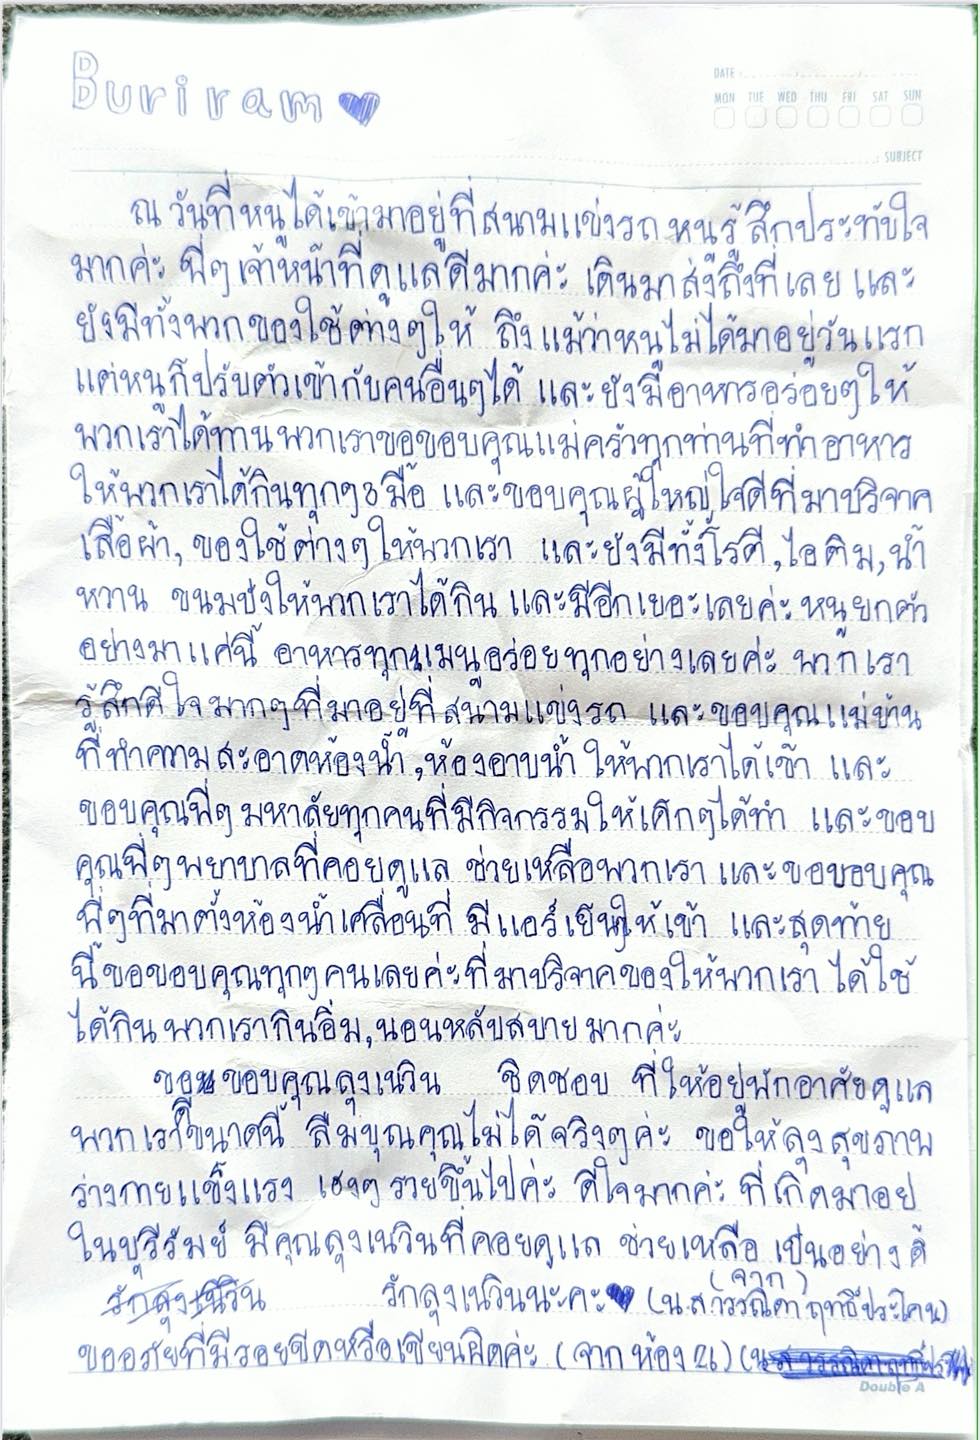 Buriram
DATE
MON TUE WED THU FRI SAT SUN
: SUBJECT
ณ วันที่หนูได้เข้ามาอยู่ที่สนามแข่งรถ หนูรู้สึกประทับใจ
มากค่ะ พี่ๆเจ้าหน้าที่ดูแลดีมากค่ะ เดินมาส่งถึงที่เลย และ
ยังมีทั้งพวกของใช้ต่างๆให้ ถึงแม้ว่าหนูไม่ได้มาอยู่วันแรก
แต่หนูก็ปรับตัวเข้ากับคนอื่นๆได้ และยังมีอาหารอร่อยๆให้
พวกเราได้ทานพวกเราขอขอบคุณแม่ครัวทุกท่านที่ทำอาหาร
ให้พวกเราได้กินทุกๆ3มื้อ และขอบคุณผู้ใหญ่ใจดีที่มาบริจาค
เสื้อผ้า,ของใช้ต่างๆให้พวกเรา และยังมีทั้งโรตี,ไอติม,น้ำ
หวาน ขนมปังให้พวกเราได้กิน และมีอีกเยอะเลยค่ะ หนูยกตัว
อย่างมาแค่นี้ อาหารทุกเมนูอร่อยทุกอย่างเลยค่ะ พวกเรา
รู้สึกดีใจมากๆที่มาอยู่ที่สนามแข่งรถ และขอบคุณแม่บ้าน
ที่ทำความสะอาดห้องน้ำ,ห้องอาบน้ำ ให้พวกเราได้เข้า และ
ขอบคุณพี่ๆมหาลัยทุกคนที่มีกิจกรรมให้เด็กๆได้ทำ และขอบ
คุณพี่ๆพยาบาลที่คอยดูแล ช่วยเหลือพวกเรา และขอขอบคุณ
พี่ๆที่มาตั้งห้องน้ำเคลื่อนที่ มีแอร์เย็นๆให้เข้า และสุดท้าย
นี้ขอขอบคุณทุกๆคนเลยค่ะที่มาบริจาคของให้พวกเรา ได้ใช้
ได้กิน พวกเรากินอิ่ม,นอนหลับสบายมากค่ะ
ขอขอบคุณลุงเนวิน ชิดชอบ ที่ให้อยู่พักอาศัยดูแล
พวกเราดีขนาดนี้ ลืมบุญคุณไม่ได้จริงๆค่ะ ขอให้ลุงสุขภาพ
ร่างกายแข็งแรง เฮงๆ รวยขึ้นไปค่ะ ดีใจมากค่ะ ที่เกิดมาอยู่
ในบุรีรัมย์ มีคุณลุงเนวินที่คอยดูแล ช่วยเหลือ เป็นอย่างดี
(จาก)
รักลุงเนวิน รักลุงเนวินนะคะ (น.ส.วรรณิดา ฤทธิ์ประโคน)
ขออภัยที่มีรอยขีดหรือเขียนผิดค่ะ (จาก ห้อง 26)
Double A